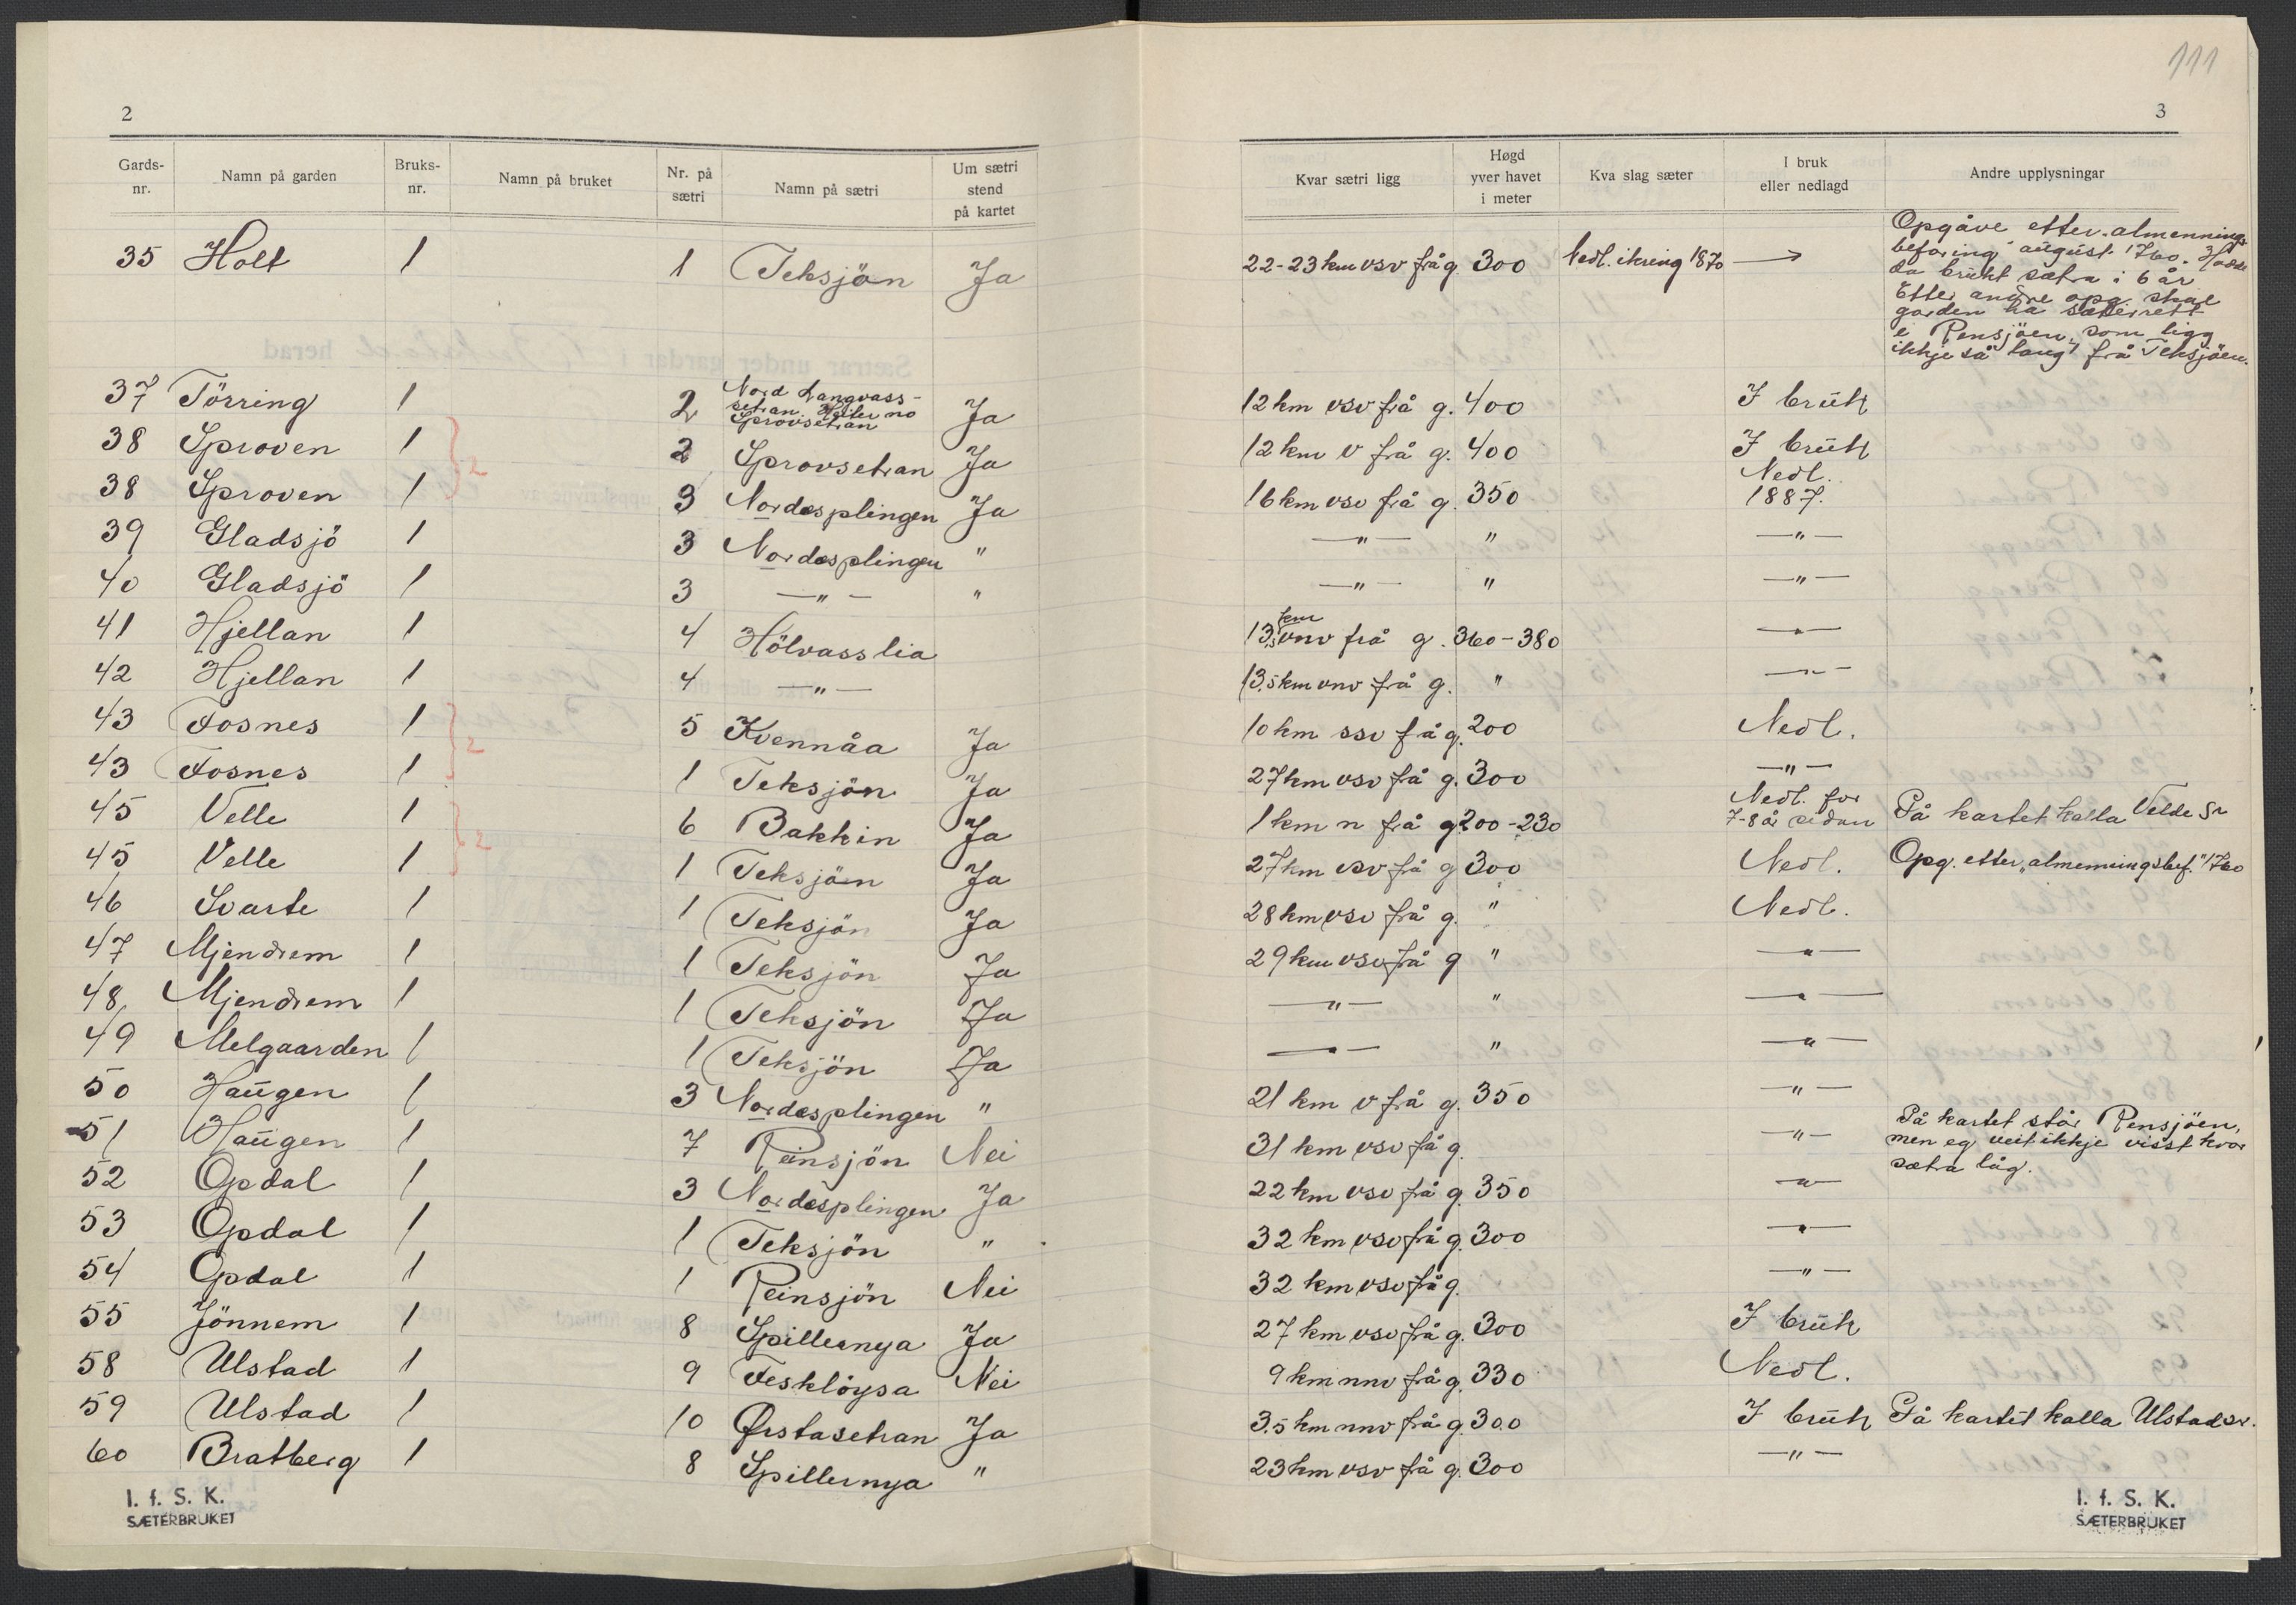 111
2
3
Gards-nr. Namn på garden Bruks-nr. Namn på bruket Nr. på sætri Namn på sætri Um sætri stend på kartet Kvar sætri ligg Høgd yver havet i meter Kva slag sæter I bruk eller nedlagd Andre upplysningar
35 Holt 1 1 Teksjön Ja 22-23 km vsv frå g. 300 Nedl. ikring 1870 → Opgåve etter „almennings-
befaring" august 1760. Hadde
da brukt sætra i 6 år
Etter andre opg. skal
garden ha sæterrett
i Rensjöen, som ligg
ikkje så langt frå Teksjöen.
37 Törring 1 2 Nord Langvass-
setran. Heiter no
Sprovsetran Ja 12 km vsv frå g. 400 I bruk
38 Sproven 1 2 Sprovsetran Ja 12 km v frå g. 400 I bruk
38 Sproven 1 3 Nordesplingen Ja 16 km vsv frå g. 350 Nedl. 1887.
2
39 Gladsjö 1 3 Nordesplingen " —"— " —"—
40 Gladsjö 1 3 —"— " —"— " —"—
41 Hjellan 1 4 Hölvasslia 13,5 km vnv frå g. 360-380 —"—
42 Hjellan 1 4 —"— 13.5 km vnv frå g. " —"—
43 Fosnes 1 5 Kvennåa Ja 10 km ssv frå g. 200 Nedl.
43 Fosnes 1 1 Teksjön Ja 27 km vsv frå g. 300 —"—
2
45 Velle 1 6 Bakkin Ja 1 km n frå g. 200-230 Nedl. for 7-8 år sidan På kartet kalla Velde sr
45 Velle 1 1 Teksjön Ja 27 km vsv frå g 300 Nedl. Opg. etter „almenningsbef." 1760
2
46 Svarte 1 1 Teksjön Ja 28 km vsv frå g. " Nedl.
47 Mjendrem 1 1 Teksjön Ja 29 km vsv frå g " —"—
48 Mjendrem 1 1 Teksjön Ja —"— " —"—
49 Melgaarden 1 1 Teksjön Ja —"— " —"—
50 Haugen 1 3 Nordesplingen " 21 km v frå g. 350 —"—
51 Haugen 1 7 Reinsjön Nei 31 km vsv frå g. —"— På kartet står Rensjöen,
men eg veit ikkje visst kvar
sætra låg.
52 Opdal 1 3 Nordesplingen Ja 22 km vsv frå g. 350 —"—
53 Opdal 1 1 Teksjön " 32 km vsv frå g. 300 —"—
54 Opdal 1 1 Reinsjön Nei 32 km vsv frå g. —"—
55 Jönnem 1 8 Spillernya Ja 27 km vsv frå g. 300 I bruk
58 Ulstad 1 9 Fesklöysa Nei 9 km nnv frå g. 330 Nedl.
59 Ulstad 1 10 Ørstasetran Ja 3.5 km nnv frå g. 300 I bruk På kartet kalla Ulstadsr.
60 Bratberg 1 8 Spillernya " 23 km vsv frå g. 300 —"—
I. f. S. K.
SÆTERBRUKET
I. f. S. K.
SÆTERBRUKET